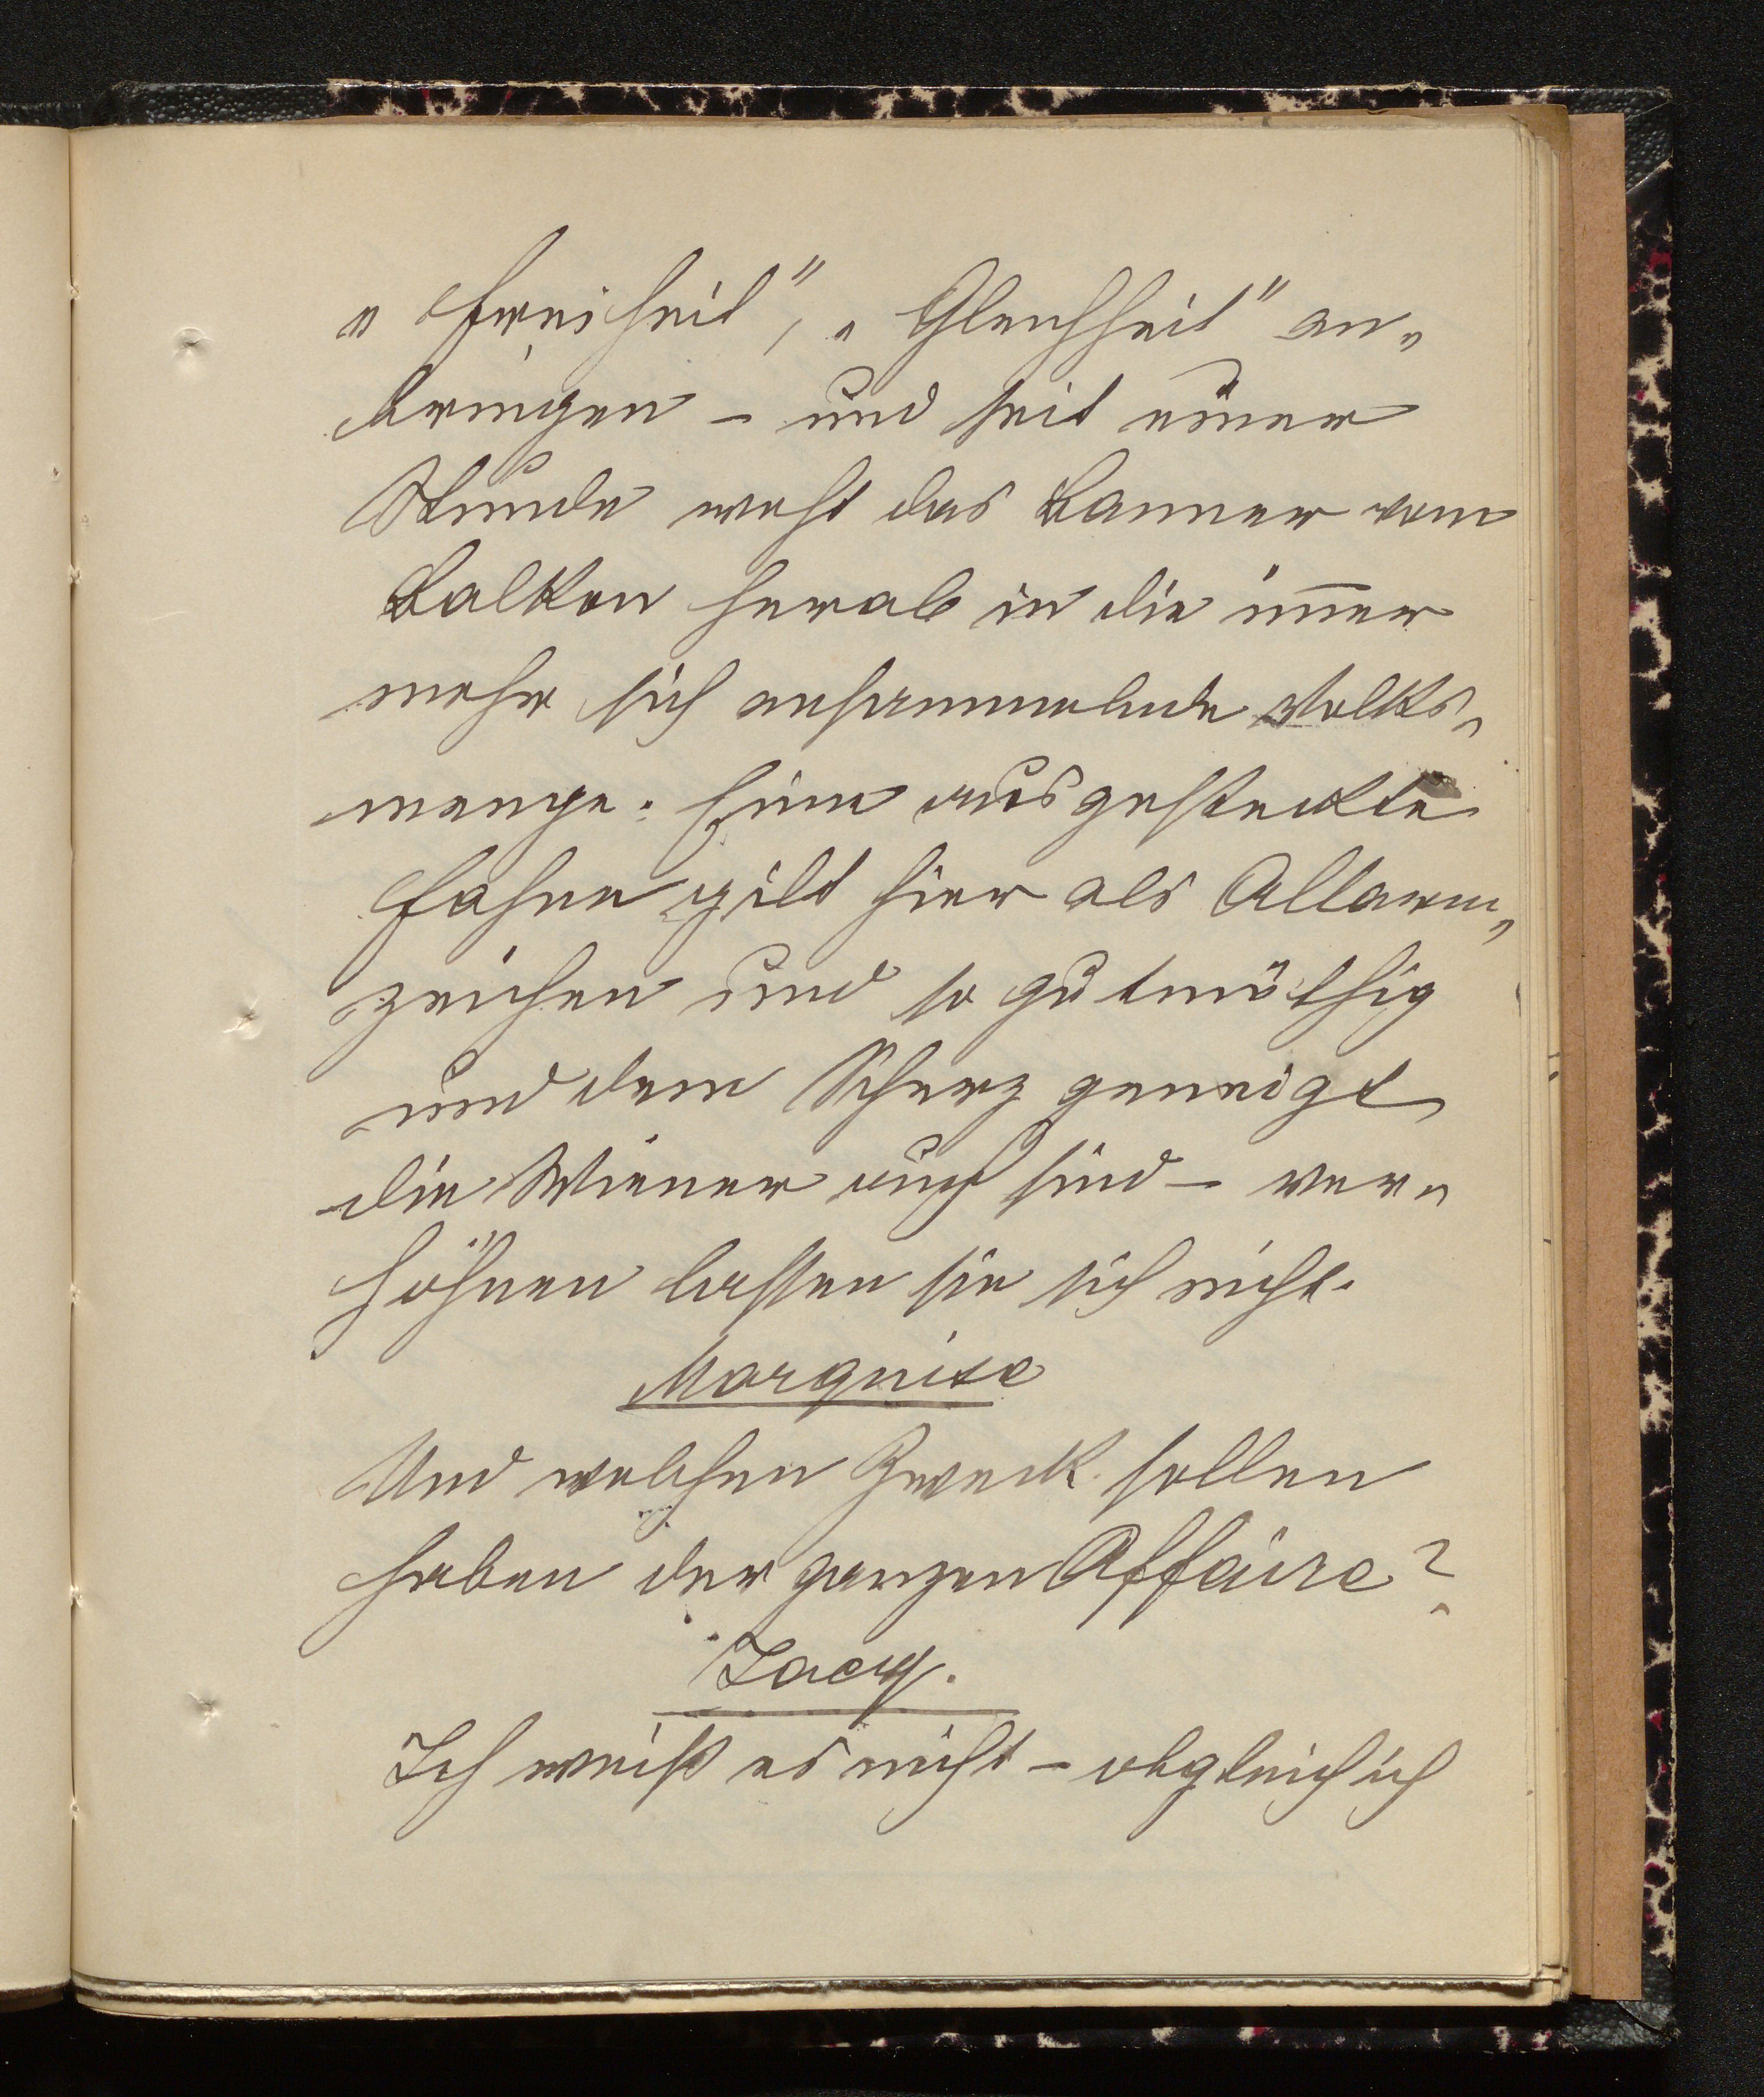 „Freiheit", „Gleichheit" an„
bringen – und seit einer
Stunde weht das Banner vom
Balkon herab in die im̅er
mehr sich ansammelnde Volks„
menge. Eine ausgesteckte
Fahne gilt hier als Allarm„
zeichen und so gutmüthig
und dem Scherz geneigt
die Wiener auch sind – ver„
höhnen lassen sie sich nicht.
Marquise
Und welchen Zweck sollen
haben der ganzen Affaire?
Lacy.
Ich weiß es nicht – obgleich ich